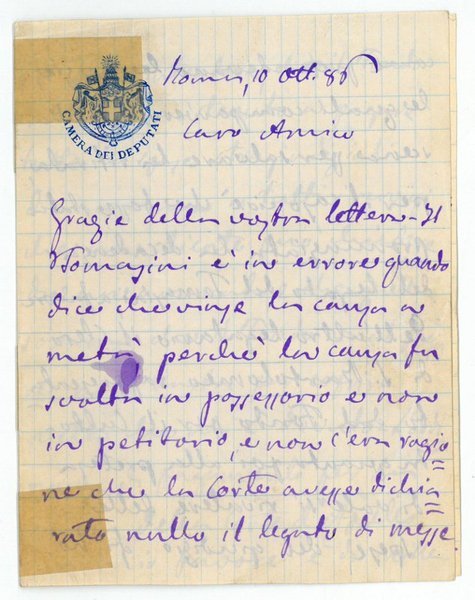 CAMERA DEI DEPUTATI
Roma, 10 Ott. 86
Caro Amico
Grazie della vostra lettera - Il
Tomasini è in errore quando
dice che vinse la causa a
metà perchè la causa fu
svolta in possessorio e non
in petitorio, e non c'era ragio=
ne che la Corte avesse dichia=
rato nullo il legato di messe